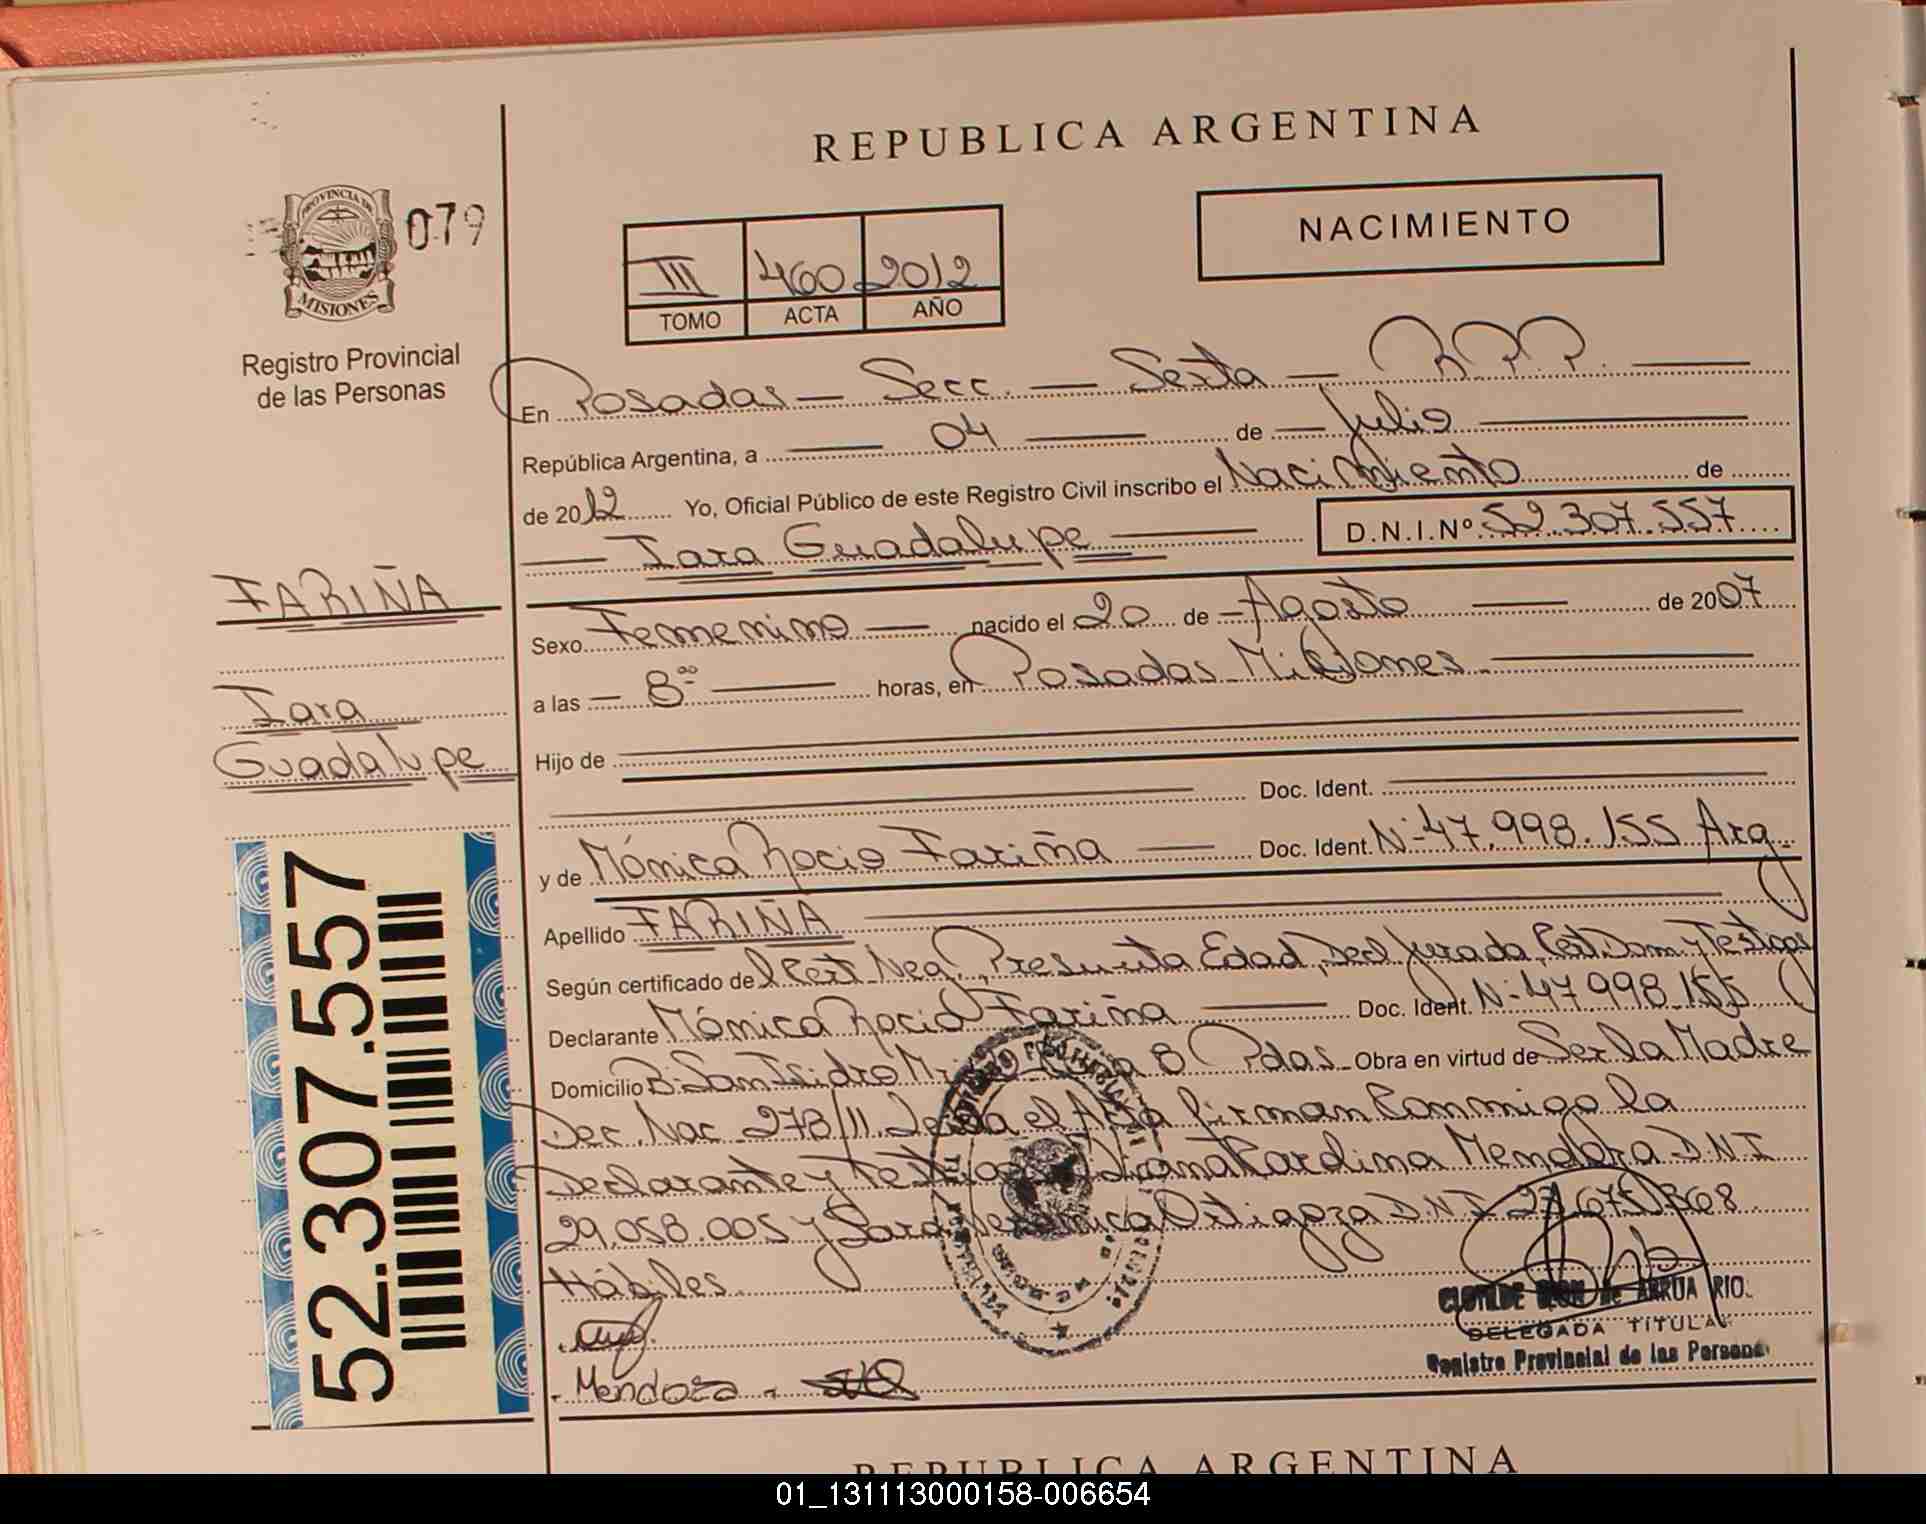 REPUBLICA ARGENTINA
PROVINCIA DE
MISIONES
079
Registro Provincial
de las Personas
III 460 2012
TOMO ACTA AÑO
NACIMIENTO
En Posadas - Secc. - Sexta - R.P.P.
República Argentina, a 04 de Julio
de 2012 Yo, Oficial Público de este Registro Civil inscribo el Nacimiento de
Iara Guadalupe D.N.I.Nº 52.307.557
FARIÑA
Iara
Guadalupe
Sexo Femenino nacido el 20 de Agosto de 2007
a las 8:00 horas, en Posadas Misiones
Hijo de
Doc. Ident.
y de Mónica Rocio Fariña Doc. Ident. Nº 47.998.155 Arg.
Apellido FARIÑA
Según certificado de Cert Neg. Presunta Edad, Decl Jurada, Cert Dom y Testigos
Declarante Mónica Rocio Fariña Doc. Ident. Nº 47.998.155
Domicilio Bº San Isidro 8 Pdas. Obra en virtud de Ser la Madre
Dec. Nac. 278/11. Leida el Acta firman Conmigo la
Declarante y Testigos Cardina Mendoza D.N.I
29.058.005 y Sara Veronica Ortigoza D.N.I 27.675.368
Hábiles.
Mendoza
CLOTILDE de ARRUA RIO.
DELEGADA TITULAR
Registro Provincial de las Personas
52.307.557
REPUBLICA ARGENTINA
01_131113000158-006654